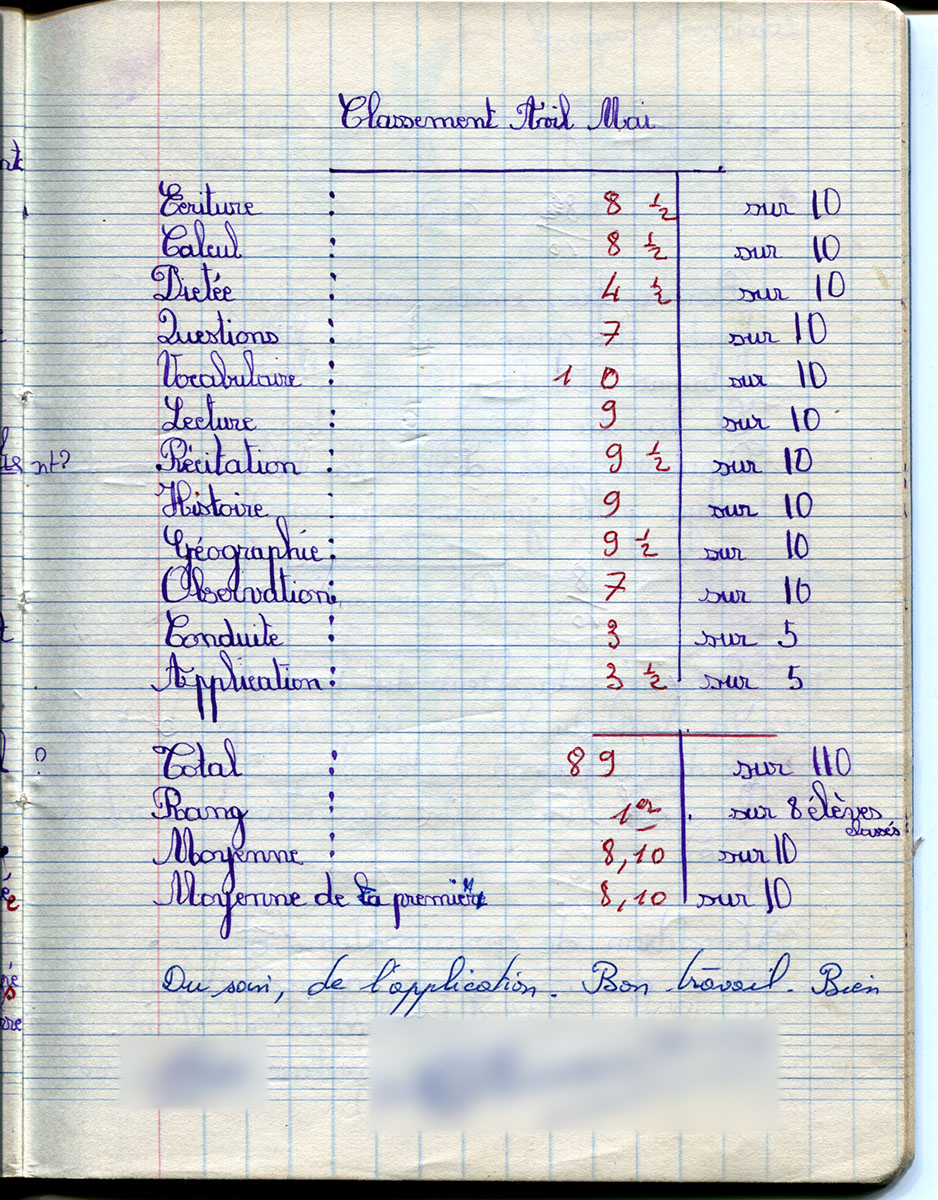 Classement Avril Mai
Ecriture : 8 ½ sur 10
Calcul : 8 ½ sur 10
Dictée : 4 ½ sur 10
Questions : 7 sur 10
Vocabulaire : 10 sur 10
Lecture : 9 sur 10
Récitation : 9 ½ sur 10
Histoire : 9 sur 10
Géographie : 9 ½ sur 10
Observation : 7 sur 10
Conduite : 3 sur 5
Application : 3 ½ sur 5
Total : 89 sur 110
Rang : 1er sur 8 élèves classés
Moyenne : 8,10 sur 10
Moyenne de la premier 8,10 sur 10
Du soin, de l'application. Bon travail. Bien
nt?
?